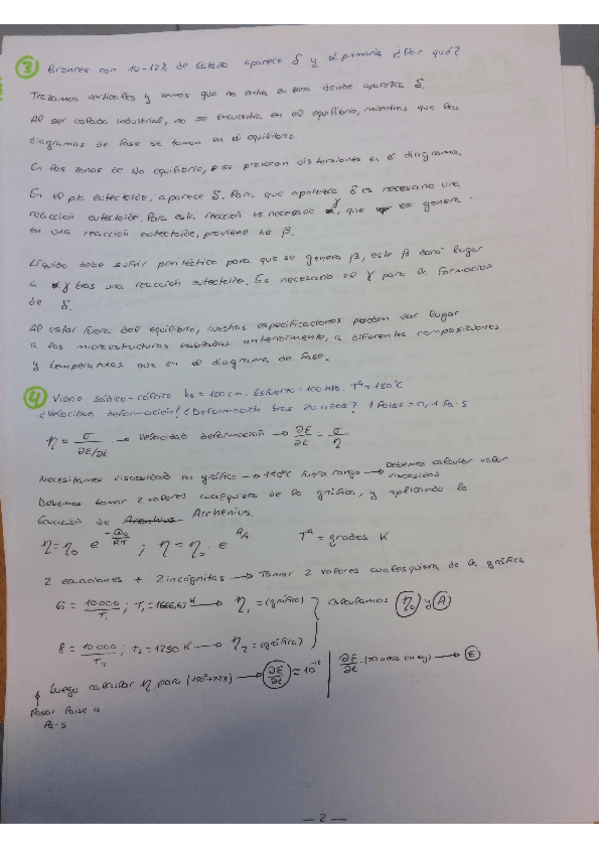 3 Bronces con 10-12% de Estaño aparece δ y α primaria ¿Por qué?
Trazamos verticales y vemos que no entra en zona donde aparezca δ.
Al ser colada industrial, no se encuentra en el equilibrio, mientras que los
diagramas de fase se toman en el equilibrio.
En las zonas de No equilibrio, se provocan distorsiones en el diagrama.
En el pto eutectoide, aparece δ. Para que aparezca δ es necesario una
reacción eutectoide. Para esta reacción es necesario γ, que se genera
en una reacción eutectoide, proviene de β.
Líquido debe sufrir peritéctica para que se genera β, este β dará lugar
a γ tras una reacción eutectoide. Es necesario el γ para la formación
de δ.
Al estar fuera del equilibrio, nuestras especificaciones pueden dar lugar
a las microestructuras anteriormente, a diferentes composiciones
y temperaturas que en el diagrama de fase.
4 Vidrio sódico-cálcico h₀ = 100 cm. Esfuerzo = 100 MPa. Tª = 150°C
¿Velocidad deformación? ¿Deformación tras 20 años? 1 Poise = 0,1 Pa·s
η = σ / ∂ε/∂t → Velocidad deformación → ∂ε/∂t = σ/η
Necesitamos viscosidad en gráfico → 150°C fuera rango → Debemos calcular valor
viscosidad
Debemos tomar 2 valores cualquiera de la gráfica, y aplicando la
Ecuación de Arrhenius.
η = η₀ e ; η = η₀ · e Tª = grados K
2 ecuaciones + 2 incógnitas → Tomar 2 valores cualesquiera de la gráfica
6 = 10000/T₁ ; T₁ = 1666,67 K → η₁ = (gráfico) } Calculamos η₀ y A
8 = 10000/T₂ ; T₂ = 1250 K → η₂ = (gráfico)
Luego calcular η para (150°+273) → ∂ε/∂t ≈ 10 | ∂ε/∂t · (20 años en seg) → ε
Pasar Poise a
Pa·s
— 2 —